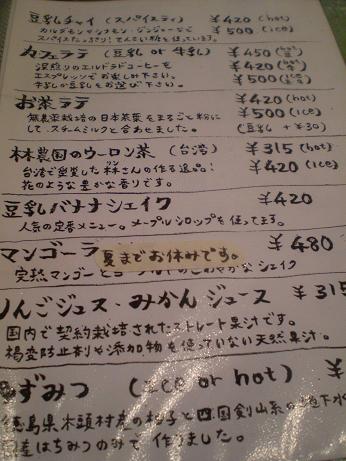 豆乳チャイ (スパイスティ) ¥420 (hot)
¥500 (ice)
カルダモンやシナモン・ジンジャーなど
スパイスたっぷり! てんさい糖を使っています。
カフェラテ (豆乳 or 牛乳) ¥450
深煎りのエルドラドコーヒーを ¥420
エスプレッソでお楽しみ下さい。 ¥500
牛乳か豆乳をお選び下さい。
お茶ラテ ¥420 (hot)
無農薬栽培の日本茶葉をまるごと粉に ¥500 (ice)
して、スチームミルクと合わせました。 (豆乳 + ¥30)
林農園のウーロン茶 (台湾) ¥315 (hot)
台湾で修業した林さんの作る逸品! ¥420 (ice)
花のような豊かな香りです。
豆乳バナナシェイク ¥420
人気の定番メニュー。メープルシロップを使ってます。
マンゴーラ 夏までお休みです。 ¥480
完熟マンゴーとヨーグルトのさわやかなシェイク
りんごジュース・みかんジュース ¥315
国内で契約栽培されたストレート果汁です。
褐変防止剤や添加物を使っていない天然果汁。
ゆずみつ (ice or hot) ¥
徳島県木頭村産の柚子と四国剣山系の地下水
国産はちみつのみで作りました。